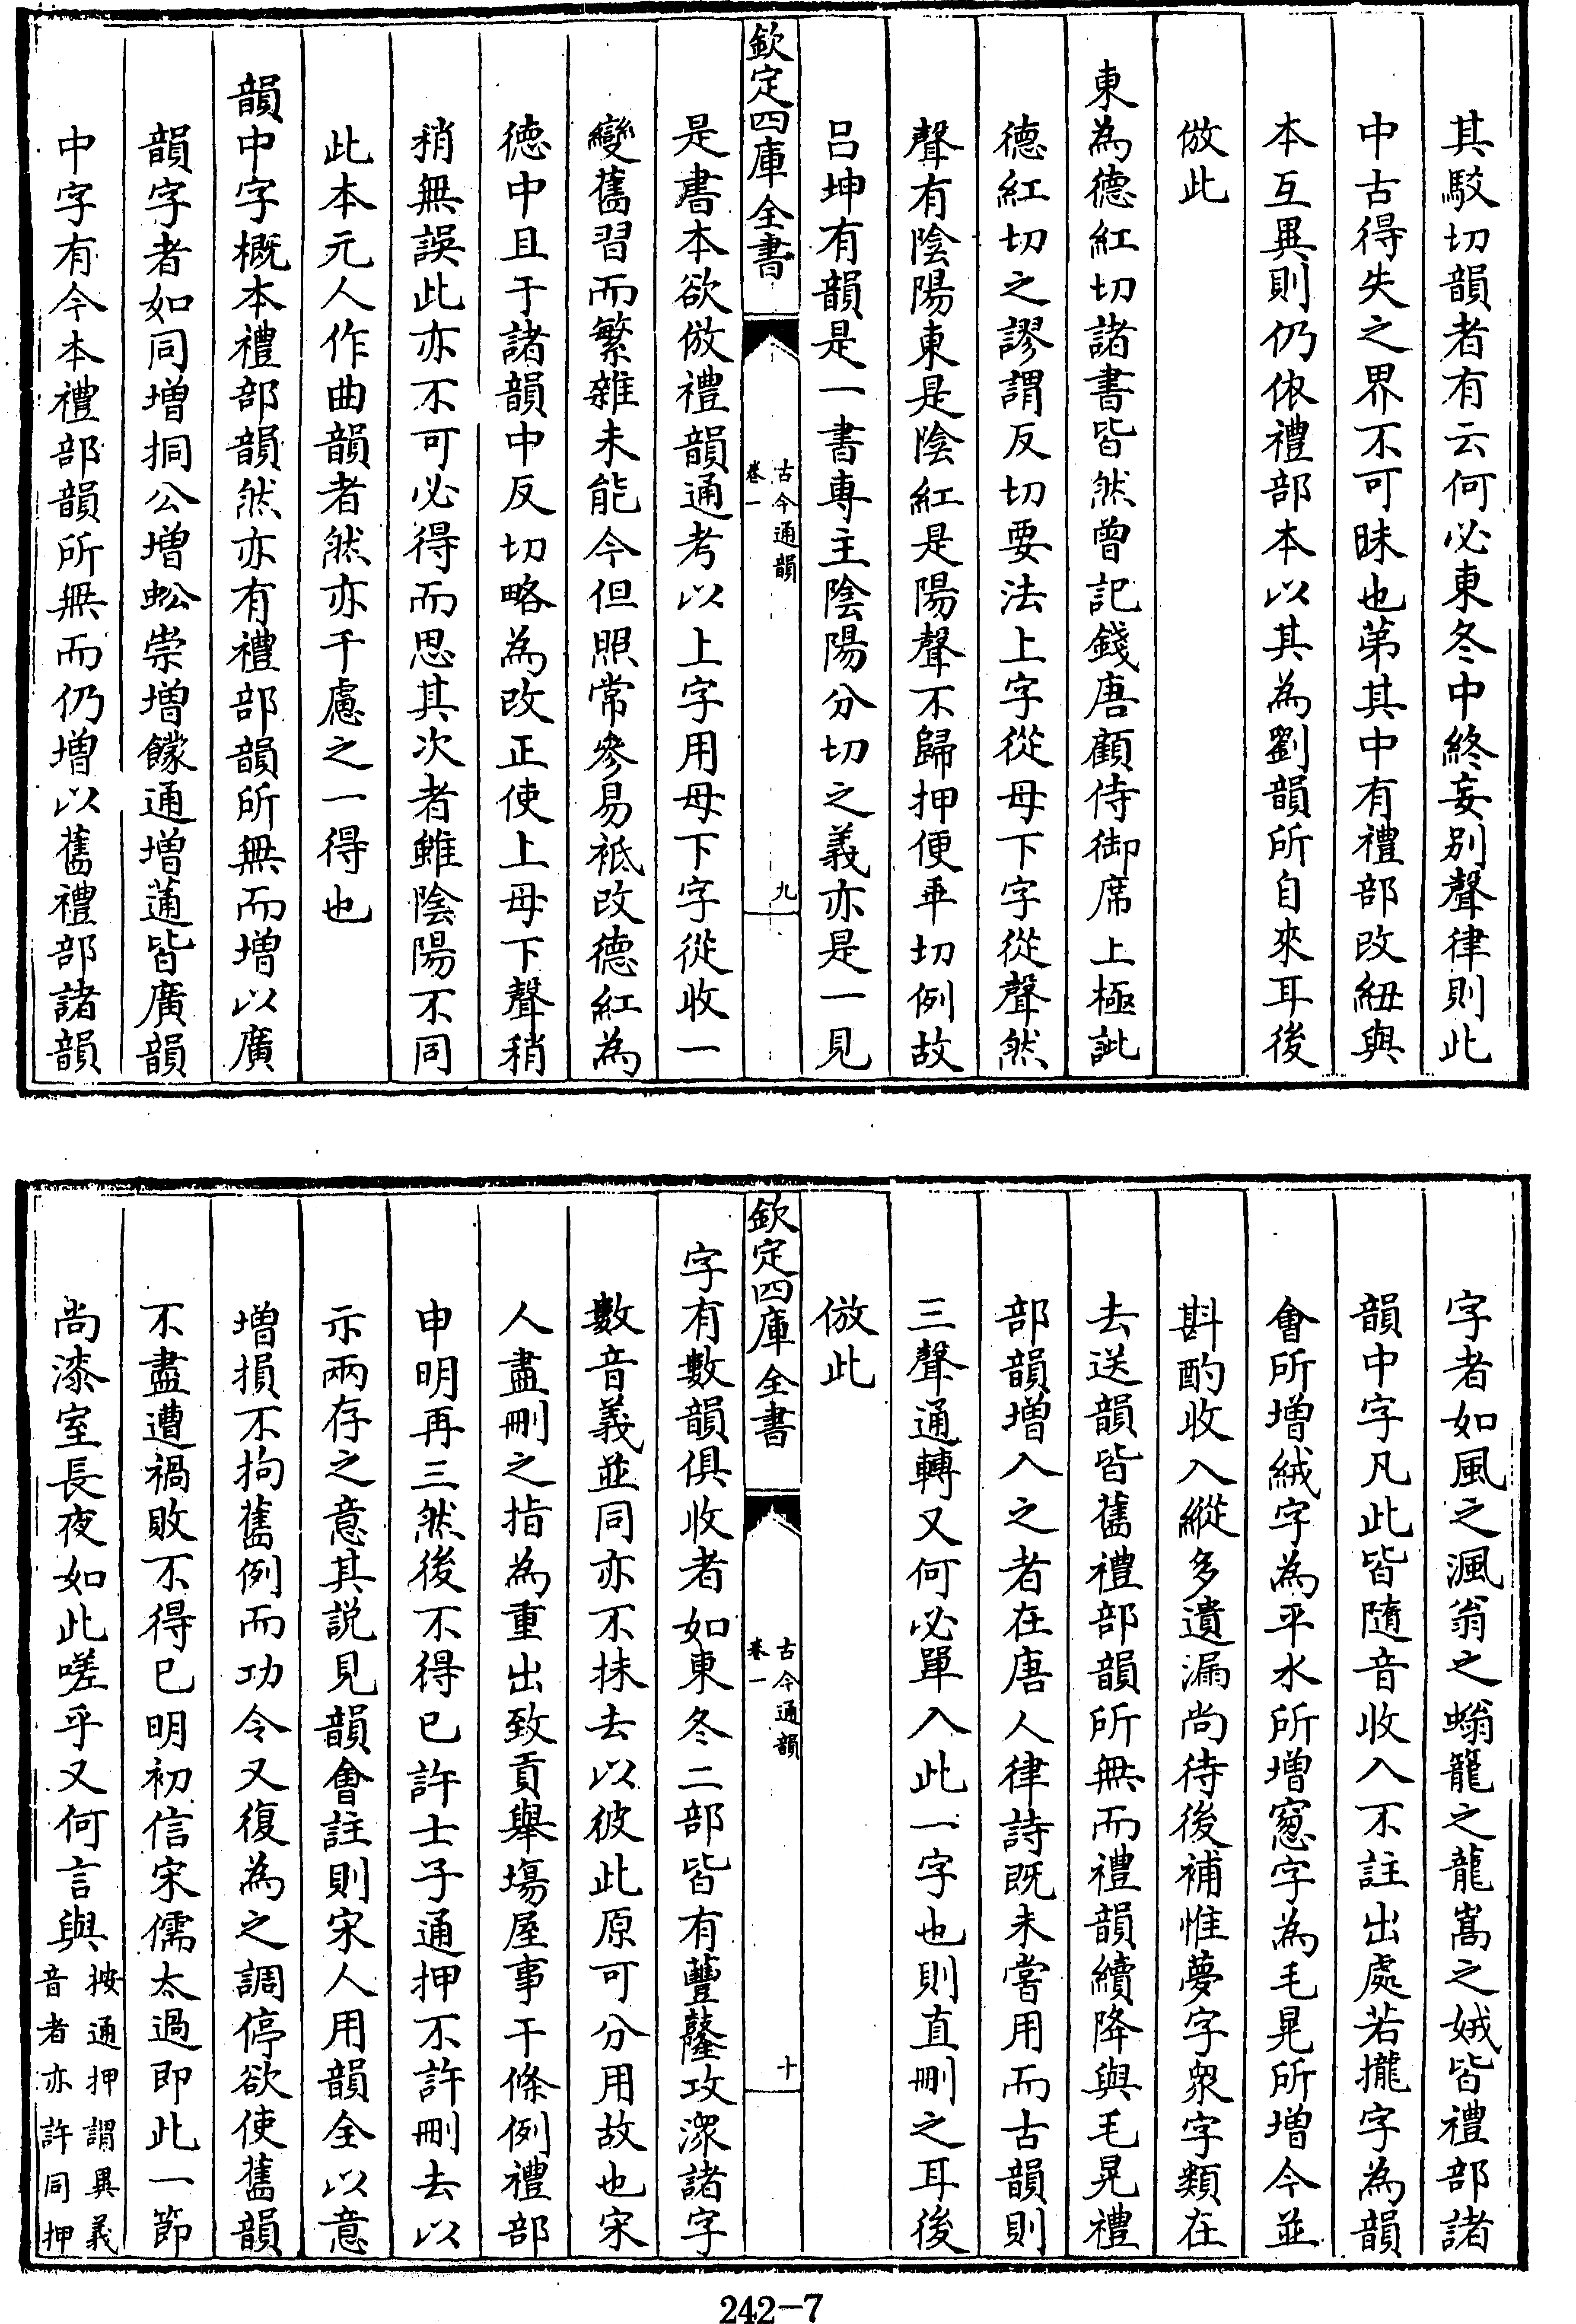 其駁切韻者有云何必東冬中終妄别聲律則此
中古得失之界不可昧也第其中有禮部改紐與
本互異則仍依禮部本以其為劉韻所自來耳後
倣此
東為德紅切諸書皆然曾記錢唐顧侍御席上極訿
德紅切之謬謂反切要法上字從母下字從聲然
聲有陰陽東是陰紅是陽聲不歸押便乖切例故
吕坤有韻是一書専主陰陽分切之義亦是一見
欽定四庫全書
古今通韻
卷一
九
是書本欲倣禮韻通考以上字用母下字從收一
變舊習而繁雜未能今但照常參易袛改德紅為
德中且于諸韻中反切略為改正使上母下聲稍
稍無誤此亦不可必得而思其次者雖陰陽不同
此本元人作曲韻者然亦千慮之一得也
韻中字概本禮部韻然亦有禮部韻所無而增以廣
韻字者如同增挏公增蚣崇增饛通增蓪皆廣韻
中字有今本禮部韻所無而仍增以舊禮部諸韻
字者如風之渢翁之螉籠之龍嵩之娀皆禮部諸
韻中字凡此皆隨音收入不註出處若攏字為韻
會所增絨字為平水所增窻字為毛晃所增今並
斟酌收入縱多遺漏尚待後補惟夢字衆字類在
去送韻皆舊禮部韻所無而禮韻續降與毛晃禮
部韻增入之者在唐人律詩既未嘗用而古韻則
三聲通轉又何必單入此一字也則直刪之耳後
倣此
欽定四庫全書
古今通韻
卷一
十
字有數韻俱收者如東冬二部皆有蘴鼟攻潈諸字
數音義並同亦不抹去以彼此原可分用故也宋
人盡刪之指為重出致貢舉場屋事干條例禮部
申明再三然後不得已許士子通押不許刪去以
示兩存之意其説見韻會註則宋人用韻全以意
增損不拘舊例而功令又復為之調停欲使舊韻
不盡遭禍敗不得已明初信宋儒太過即此一節
尚漆室長夜如此嗟乎又何言與按通押謂異義
音者亦許同押
242-7